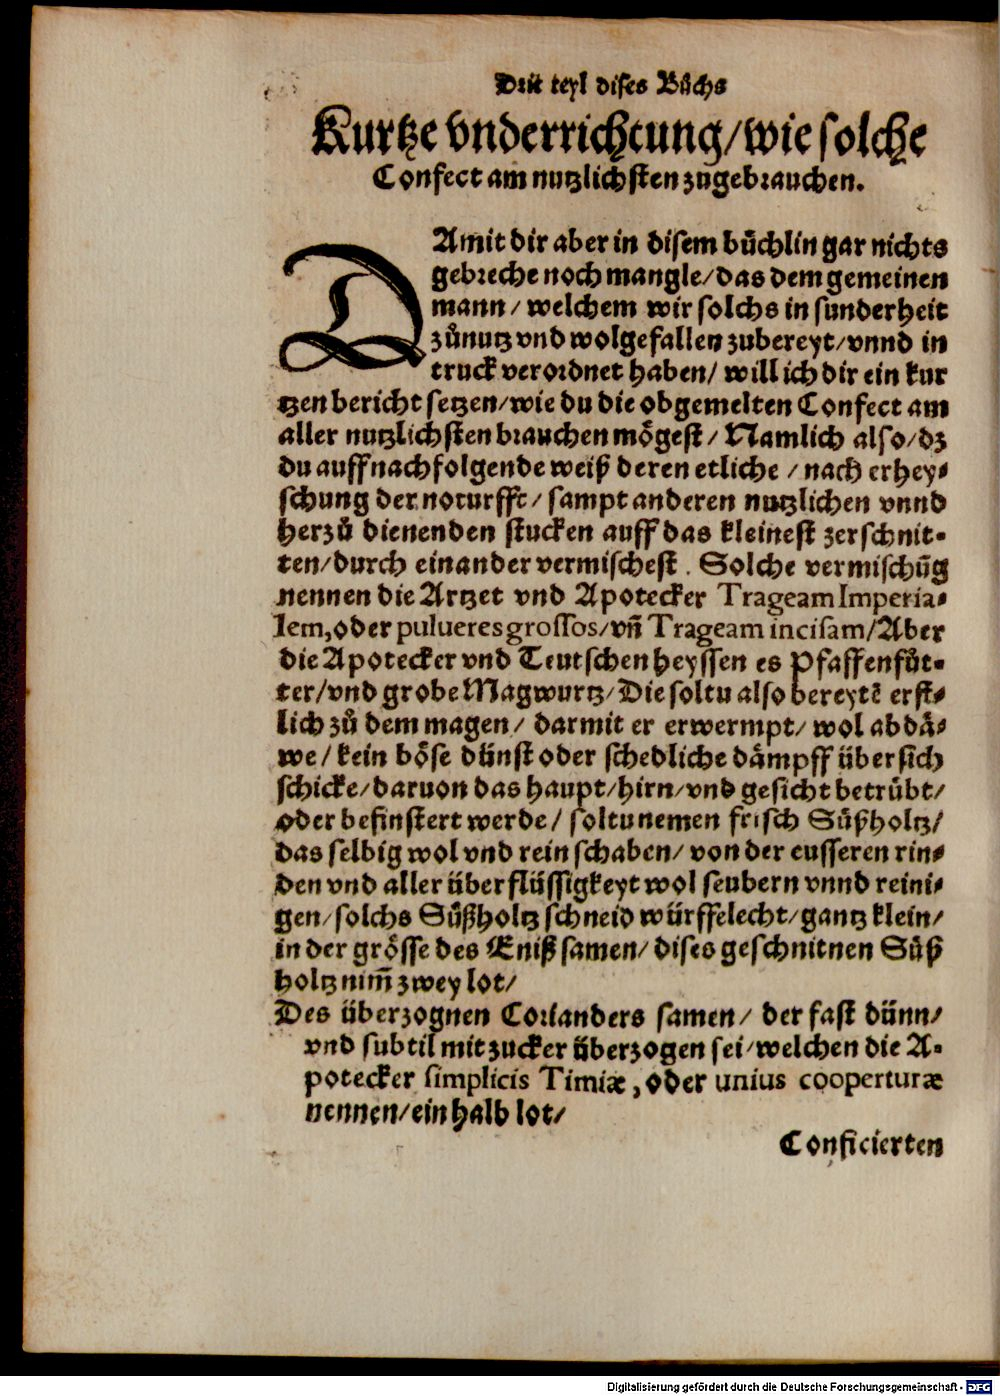 Drit teyl dises Bůchs
Kurtze vnderrichtung/wie solche
Confect am nutzlichsten zůgebrauchen.
DAmit dir aber in disem bůchlin gar nichts
gebreche noch mangle/das dem gemeinen
mann/ welchem wir solchs in sunderheit
zůnutz vnd wolgefallen zubereyt/vnnd in
truck verordnet haben/ will ich dir ein kur
tzen bericht setzen/wie du die obgemelten Confect am
aller nutzlichsten brauchen mögest/ Namlich also/dz
du auff nachfolgende weiß deren etliche /nach erhey-
schung der noturfft/ sampt anderen nutzlichen vnnd
herzů dienenden stucken auff das kleinest zerschnit-
ten/durch einander vermischest. Solche vermischūg
nennen die Artzet vnd Apotecker Trageam Imperia-
lem, oder pulueres grossos/vñ Trageam incisam/Aber
die Apotecker vnd Teutschen heyssen es Pfaffenfůt-
ter/vnd grobe Magwurtz/Die soltu also bereytē erst-
lich zů dem magen/ darmit er erwermpt/ wol abdä-
we/ kein böse dünst oder schedliche dämpff über sich
schicke/daruon das haupt/hirn/vnd gesicht betrübt/
oder befinstert werde/ soltu nemen frisch Süßholtz/
das selbig wol vnd rein schaben/ von der eusseren rin-
den vnd aller überflüssigkeyt wol seubern vnnd reini-
gen/solchs Süßholtz schneid würffelecht/gantz klein/
in der grösse des Eniß samen/ dises geschnitnen Süß
holtz nim̄ zwey lot/
Des überzognen Corianders samen/ der fast dünn/
vnd subtil mit zucker überzogen sei/welchen die A-
potecker simplicis Timiæ, oder unius cooperturæ
nennen/ein halb lot/
Conficierten
Digitalisierung gefördert durch die Deutsche Forschungsgemeinschaft - DFG